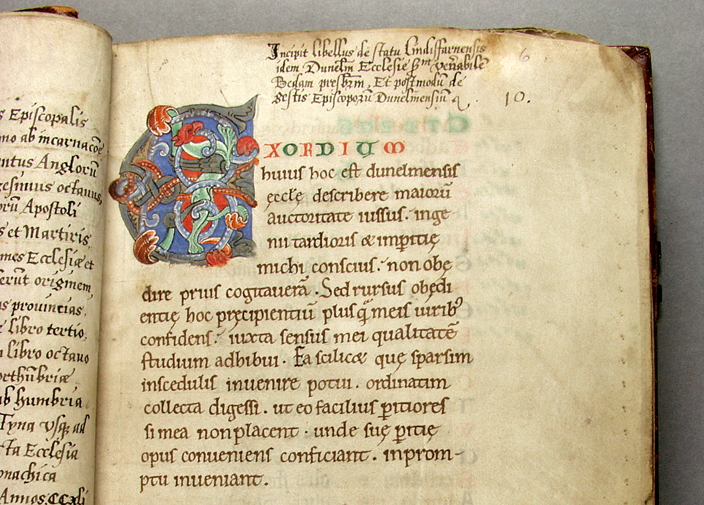 s Episcopalis
no ab incarnacōe
entus Angloru͞
gesimus octauus,
orū Apostoli
s et Martiris,
mes Ecclesiæ et
erūt originem,
as prouincias.
e libro tertio,
libro octauo
orthūbriæ
ab humbria
Tyna vsq; ad
ta Ecclesia
onachica
Annos. CCxli
Incipit libellus de statu Lindisfarnensis
idem Dunelm̄ Ecclesiæ s͞m veṅabilē
Bedam presbr̄m, Et postmodū de
gestis Episcoporū Dunelmensiū
6
10.
EXORDIUM
huius hoc est dunelmensis
ęcclę describere maiorū
auctoritate iussus. inge
nii tardioris & impitię
michi conscius. non obę
dire prius cogitauerā. Sed rursus obędi
entię hoc pręcipientiū plus quā meis uirib;
confidens. iuxta sensus mei qualitatē
studium adhibui. Ea scilic& quę sparsim
inscedulis inuenire potui. ordinatim
collecta digessi. ut eo facilius pitiores
si mea non placent. unde suę pitię
opus conueniens conficiant. inprom-
ptu inueniant.